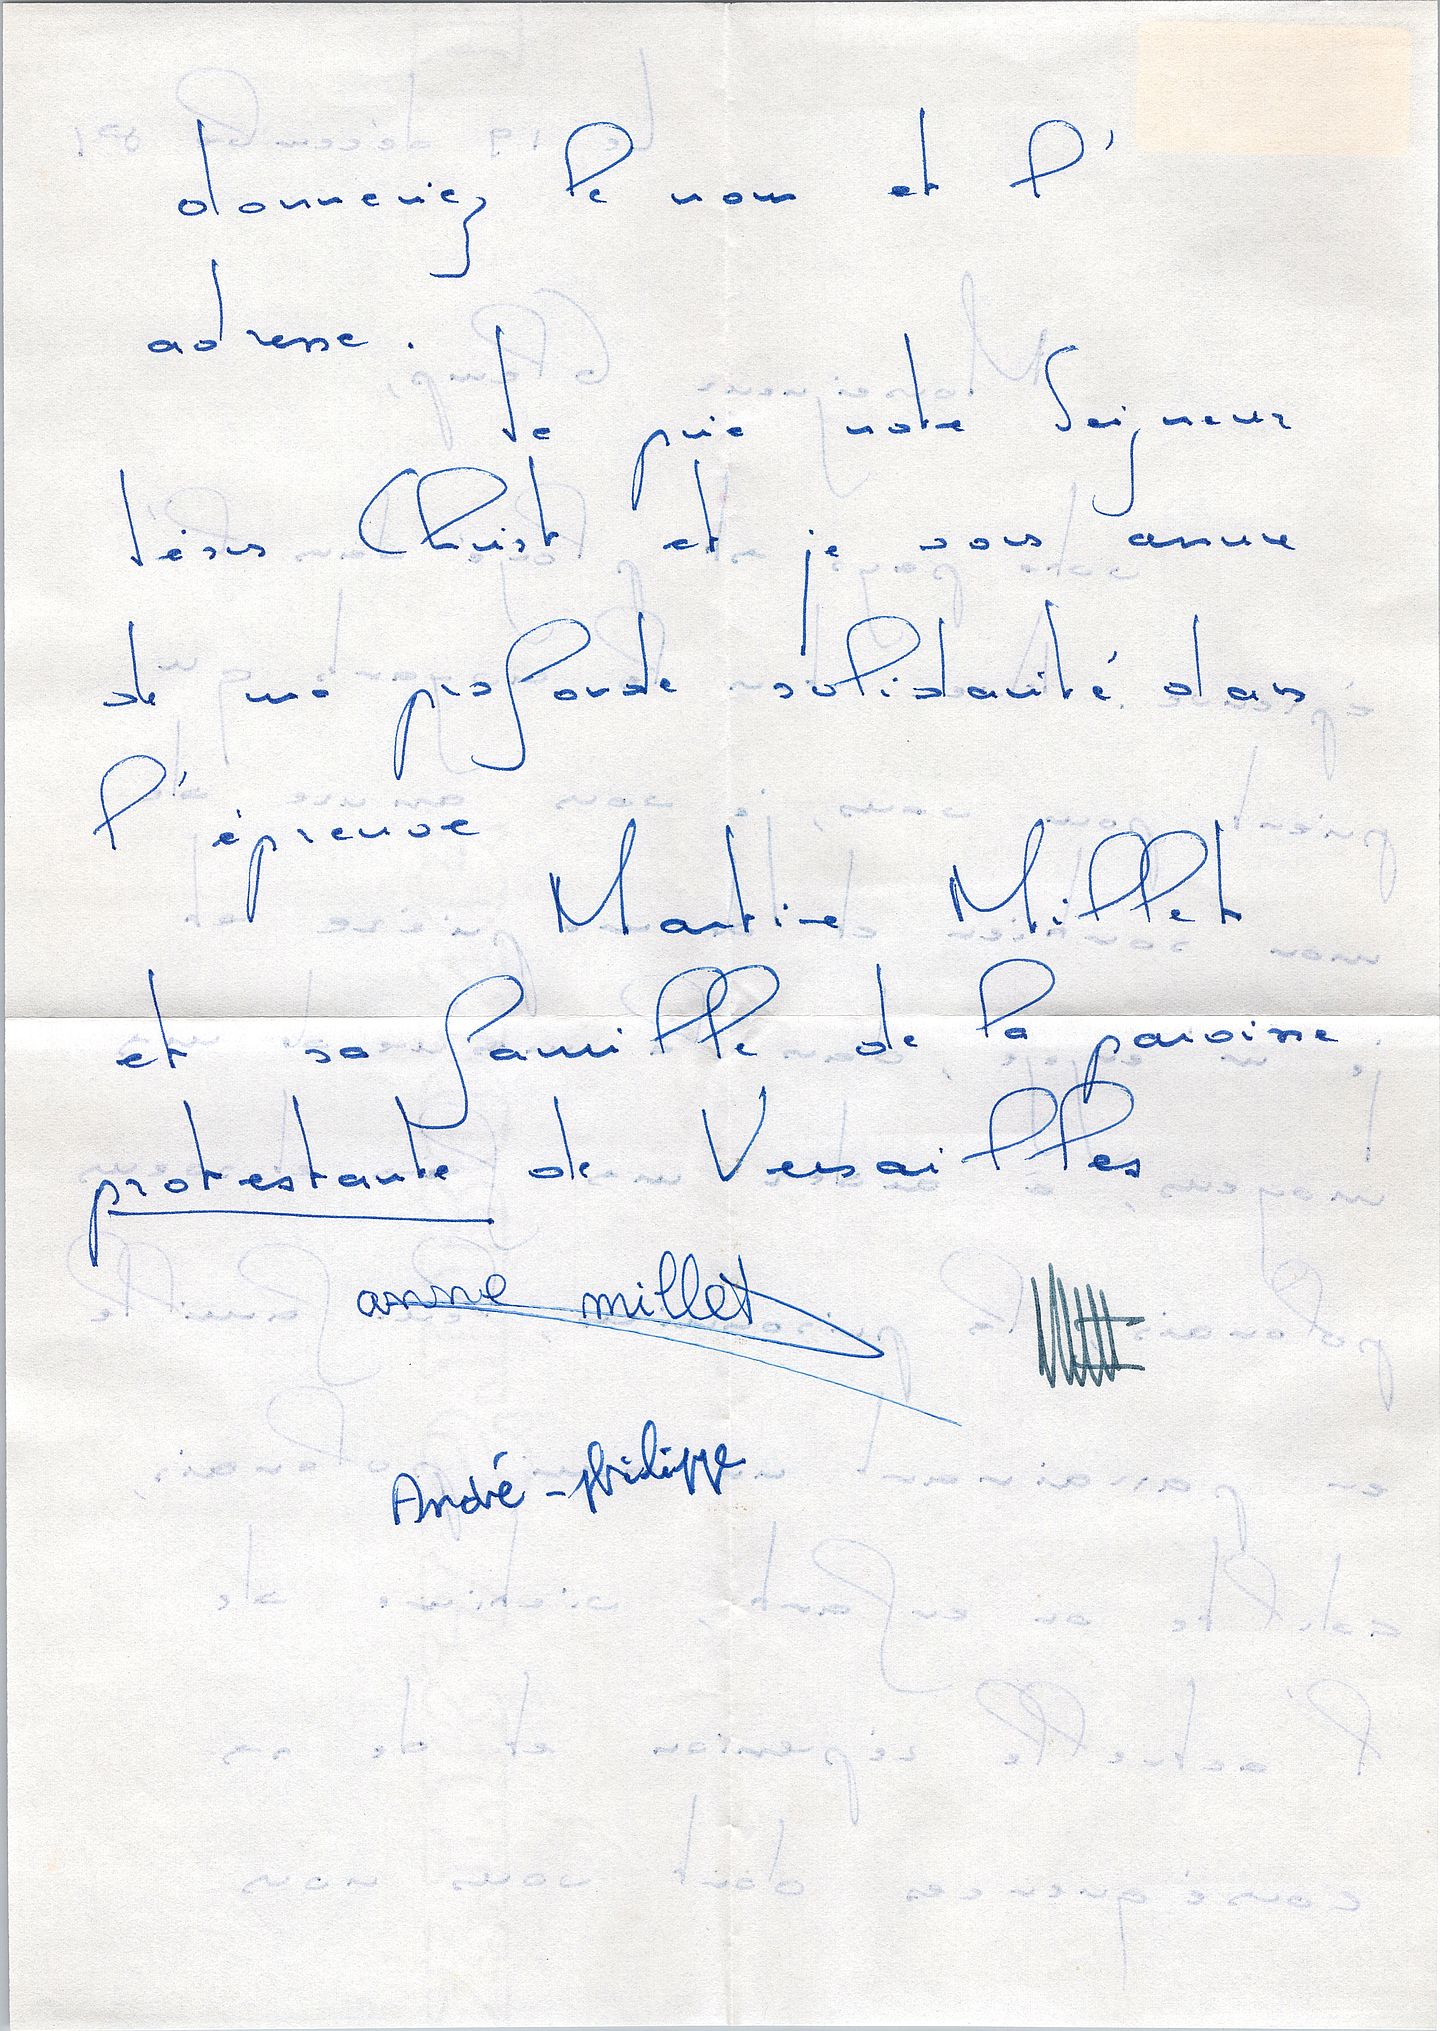 donneriez le nom et l'
adresse.
Je prie notre Seigneur
Jésus Christ et je vous assure
de ma profonde solidarité dans
l'épreuve
Martine Millet
et sa famille de la paroisse
protestante de Versailles
anne millet
André-philippe